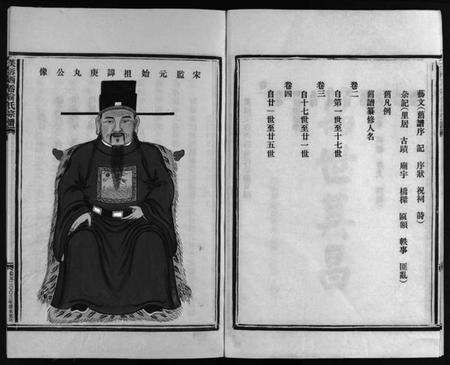 藝文(舊譜序 記 序狀 祝祠 詩)
余記(里居 古蹟 廟宇 橋樑 匾額 軼事 匪亂)
舊凡例
舊譜纂修人名
卷二
自第一世至十七世
卷三
自十七世至廿一世
卷四
自廿一世至廿五世
宋監元始祖諱庚丸公像